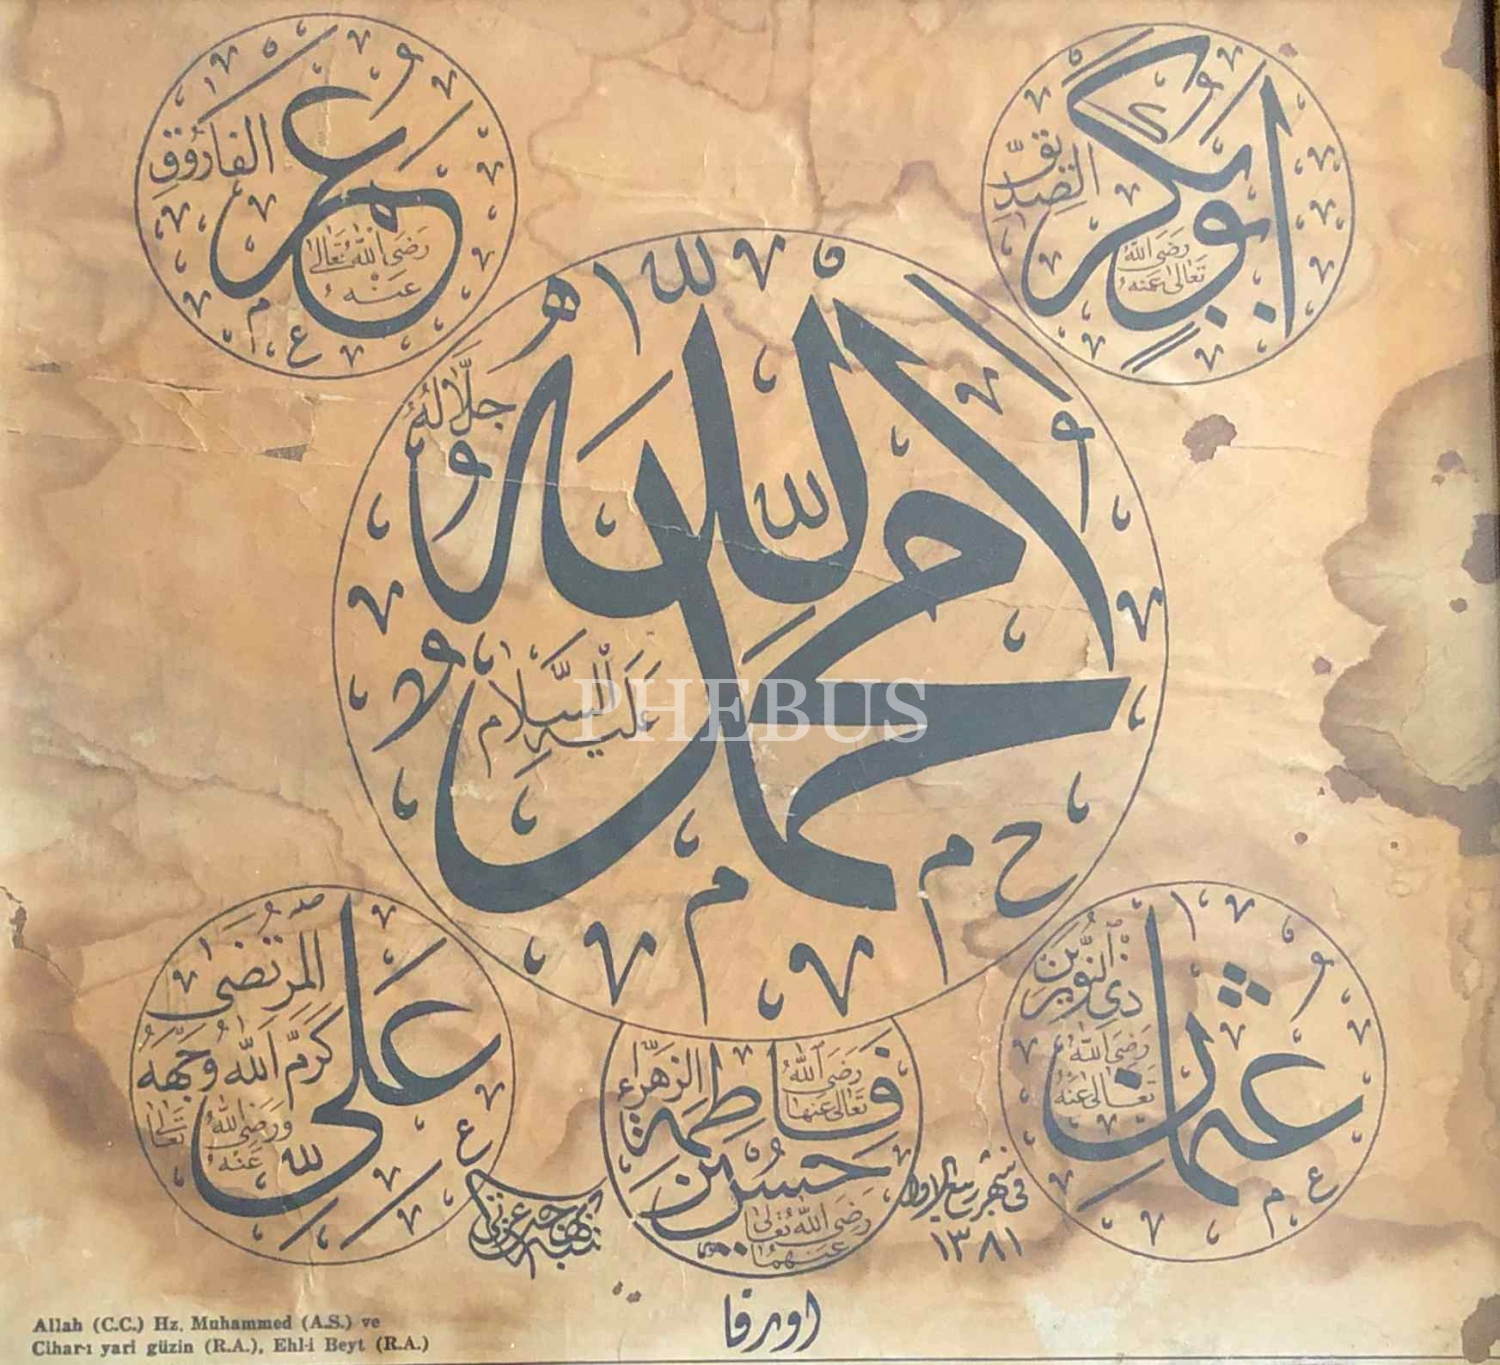 ابوبكر
الصديق
رضى الله
تعالى عنه
عمر
الفاروق
رضى الله تعالى
عنه
الله
جل جلاله
محمد
عليه السلام
PHEBUS
عثمان
ذى النورين
رضى الله
تعالى عنه
على
المرتضى
كرم الله وجهه
ورضى الله
تعالى
عنه
فاطمة
الزهراء
رضى الله
تعالى عنها
حسين
رضى الله تعالى
عنهما
فى شهر ربيع الاول
١٣٨١
اورفا
Allah (C.C.) Hz. Muhammed (A.S.) ve
Cihar-ı yari güzin (R.A.), Ehl-i Beyt (R.A.)